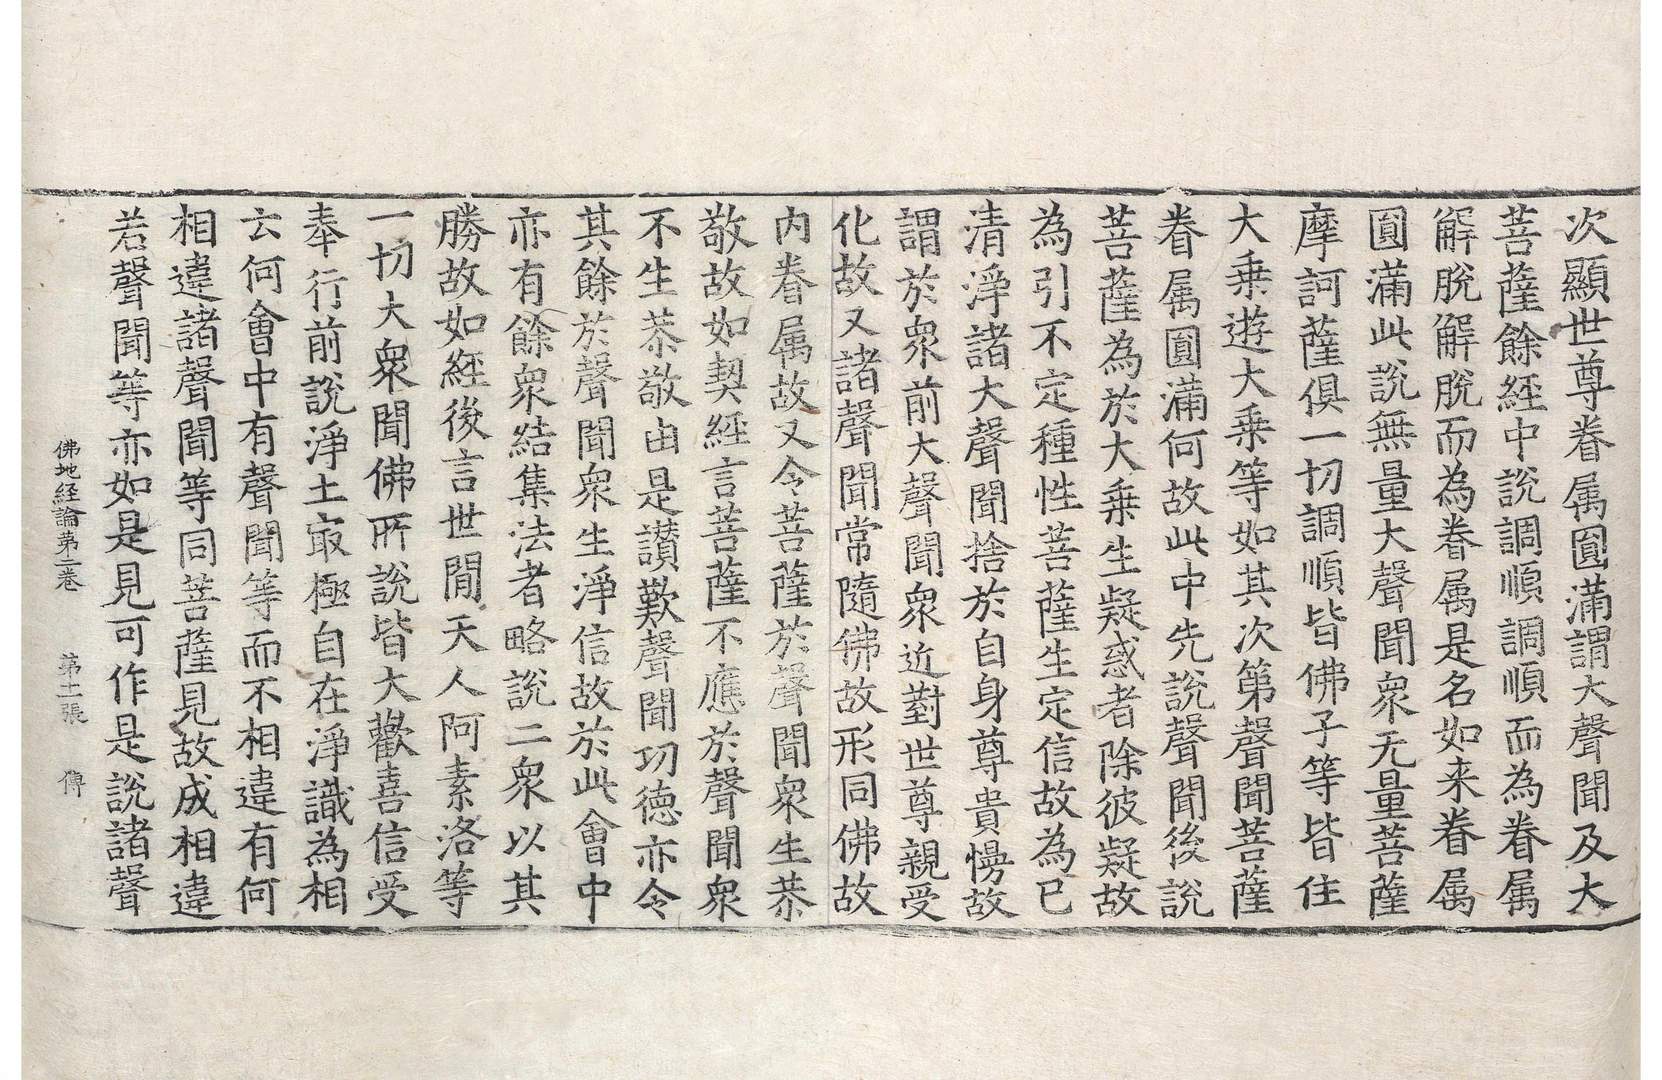 次顯世尊眷属圎滿謂大聲聞及大
菩薩餘経中說調順調順而為眷属
解脫解脫而為眷属是名如来眷属
圎滿此說無量大聲聞衆无量菩薩
摩訶薩俱一切調順皆佛子等皆住
大乗遊大乗等如其次第聲聞菩薩
眷属圎滿何故此中先說聲聞後說
菩薩為於大乗生疑惑者除彼疑故
為引不定種性菩薩生定信故為已
清淨諸大聲聞捨於自身尊貴慢故
謂於衆前大聲聞衆近對世尊親受
化故又諸聲聞常隨佛故形同佛故
内眷属故又令菩薩於聲聞衆生恭
敬故如契經言菩薩不應於聲聞衆
不生恭敬由是讃歎聲聞功德亦令
其餘於聲聞衆生淨信故於此會中
亦有餘衆結集法者略說二衆以其
勝故如經後言世間天人阿素洛等
一切大衆聞佛所說皆大歡喜信受
奉行前說淨土㝡極自在淨識為相
云何會中有聲聞等而不相違有何
相違諸聲聞等同菩薩見故成相違
若聲聞等亦如是見可作是說諸聲
佛地経論苐二卷 苐十一張 傳